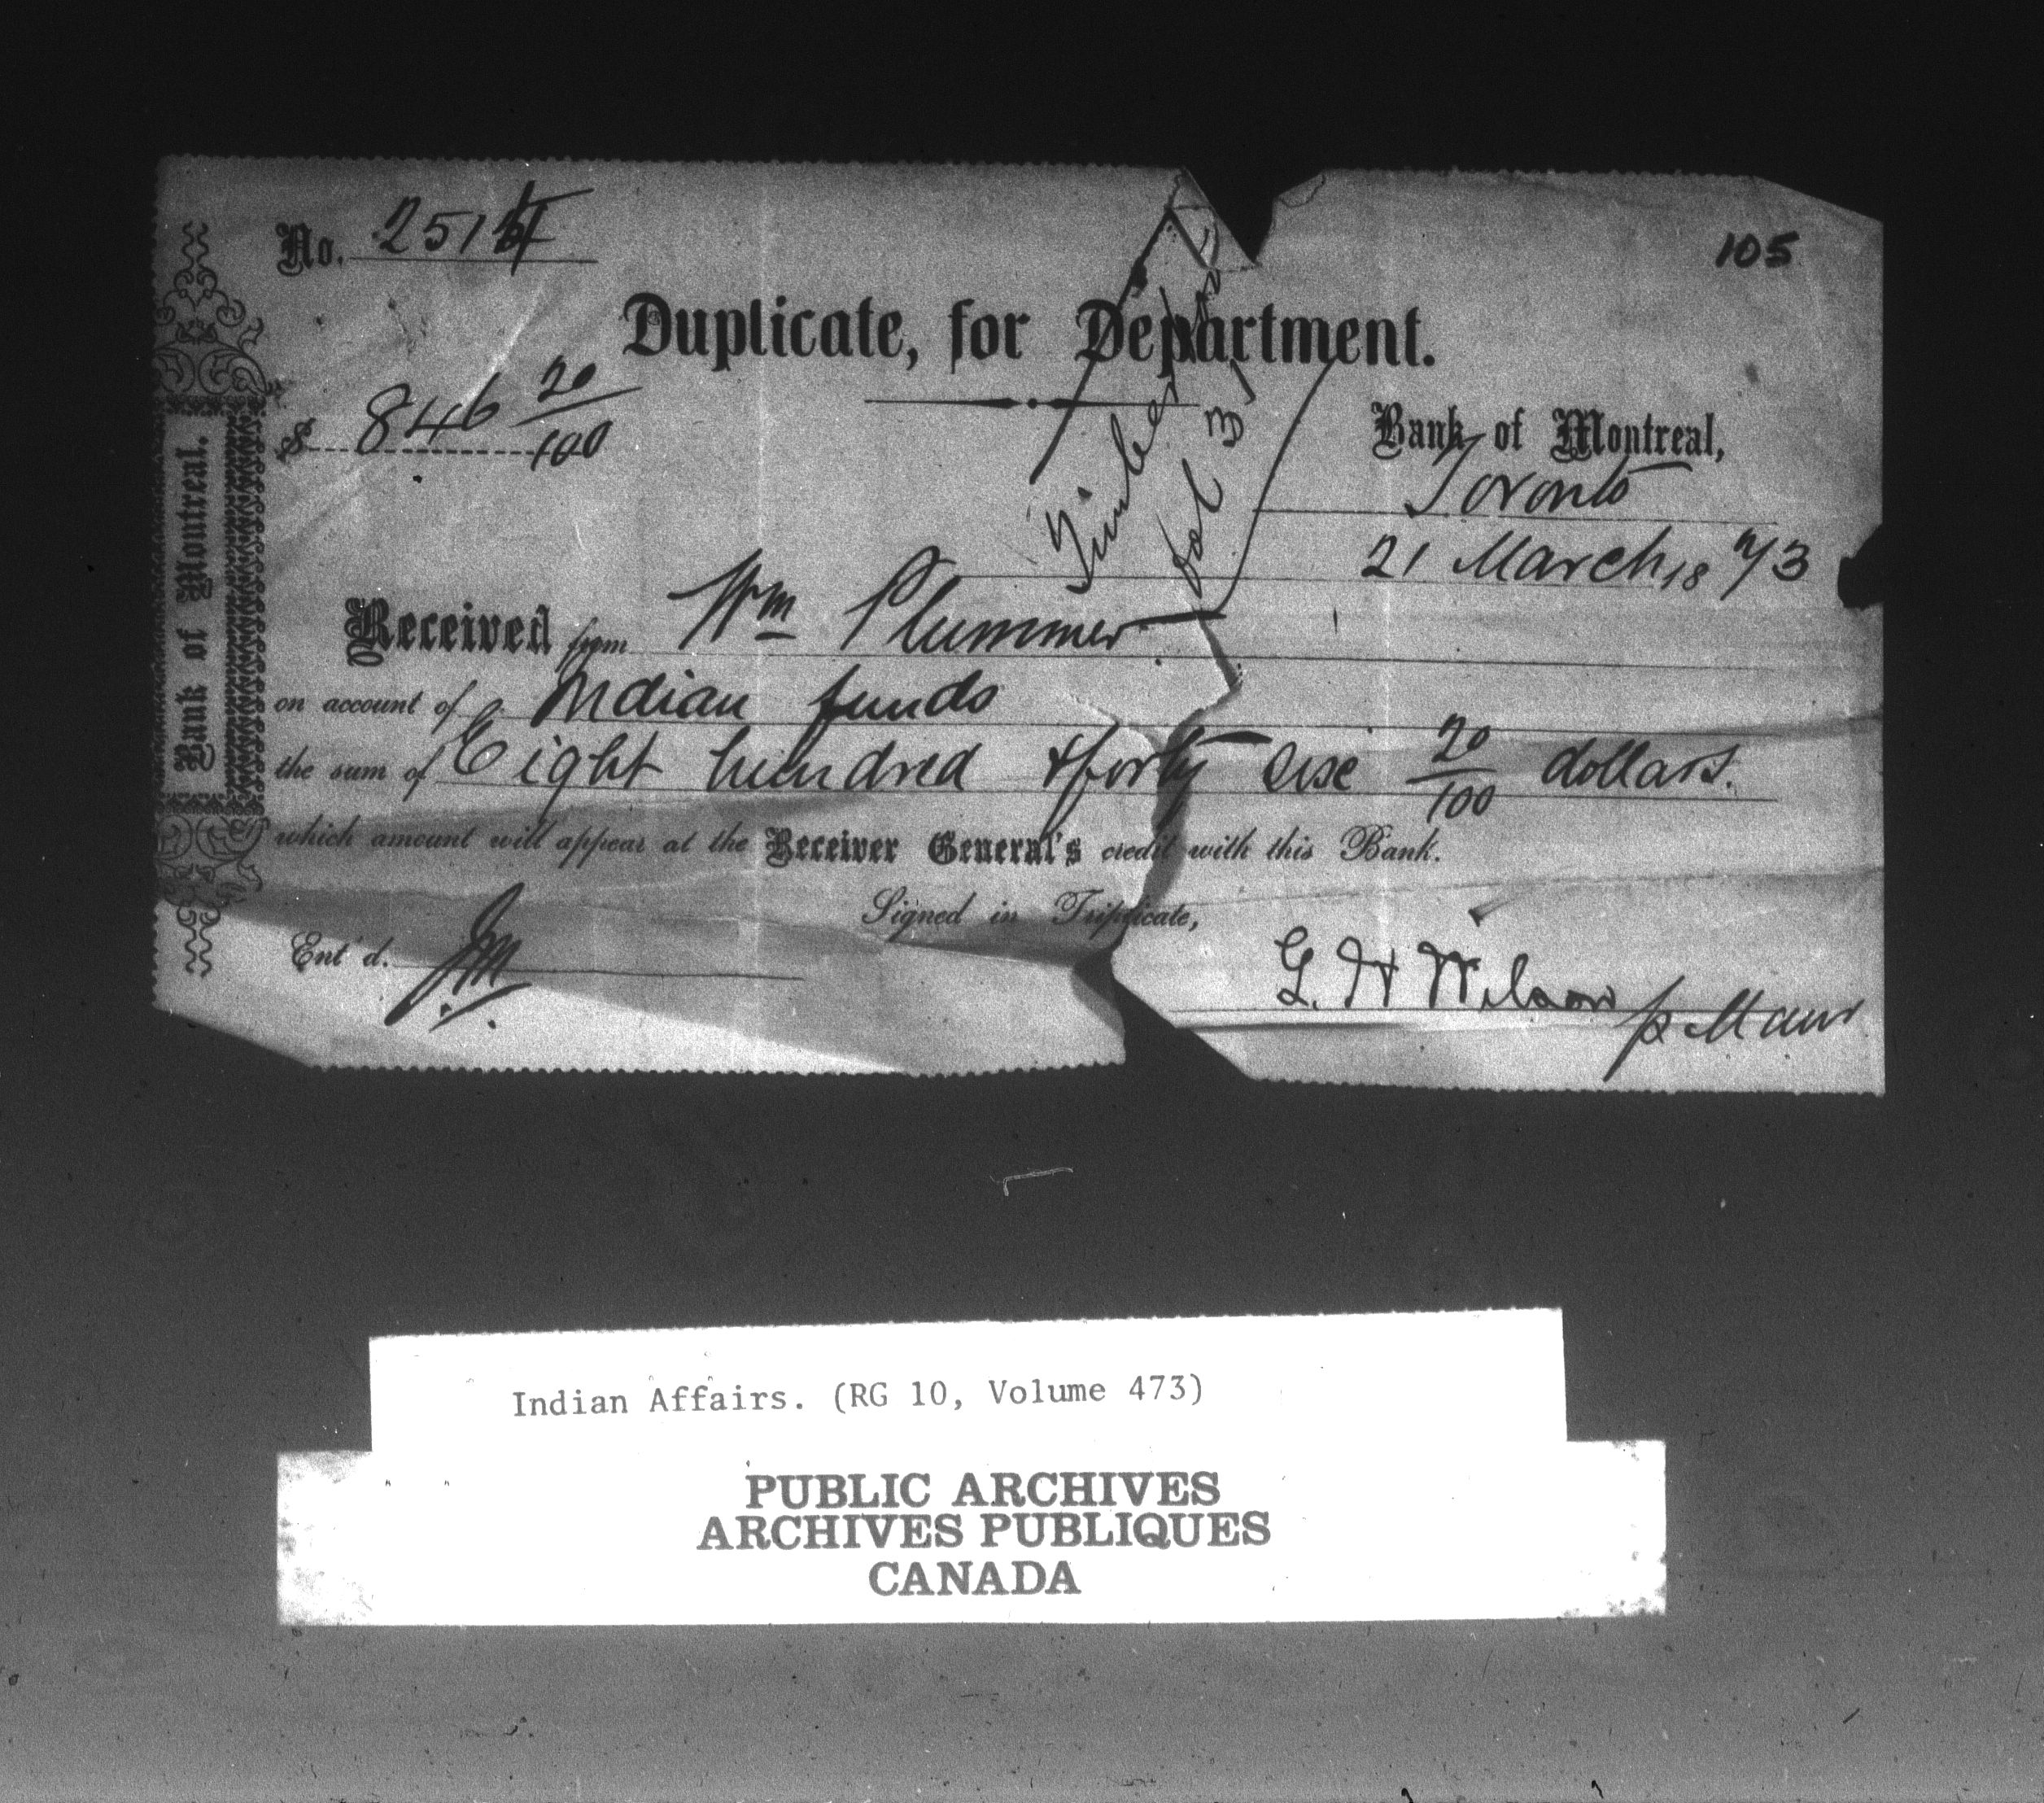 105
No. 2514
Duplicate, for Department.
$ 846 20/100
Timber
fol 31
Bank of Montreal,
Toronto
21 March, 1873
Bank of Montreal.
Received from Wm Plummer
on account of Indian funds
the sum of Eight hundred & forty six 20/100 dollars.
which amount will appear at the Receiver General's credit with this Bank.
Signed in Triplicate,
Ent'd. JM
G. H Wilson
p Manr
Indian Affairs. (RG 10, Volume 473)
PUBLIC ARCHIVES
ARCHIVES PUBLIQUES
CANADA